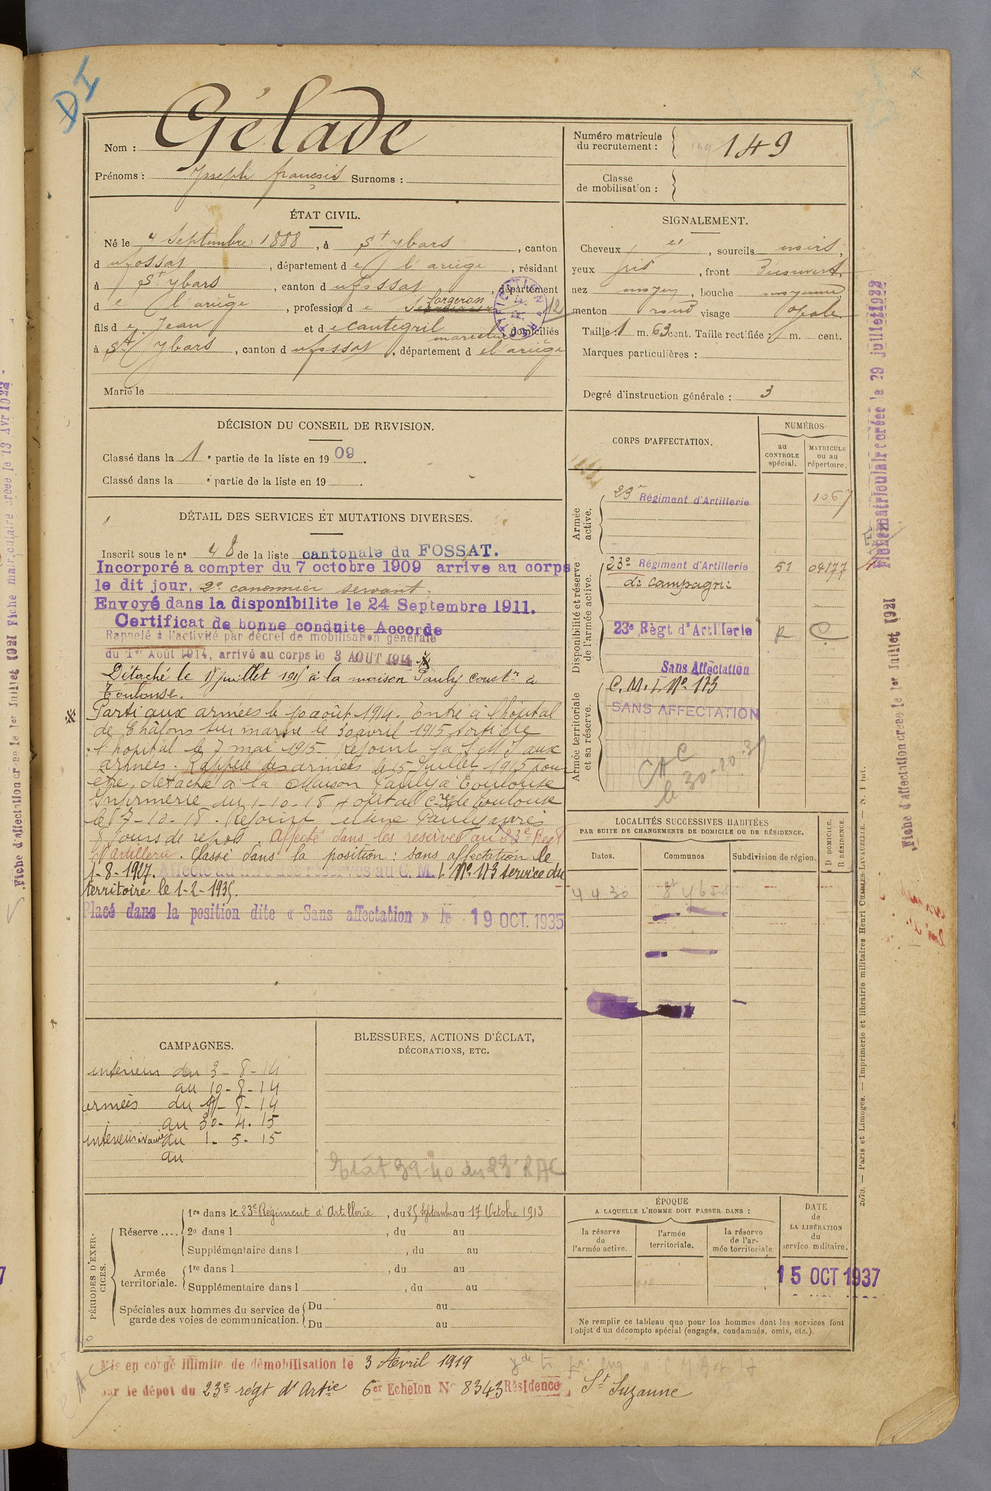 DI
Nom : Gélade
Prénoms : Joseph françois Surnoms :
Numéro matricule
du recrutement : 149
Classe
de mobilisation :
ÉTAT CIVIL.
Né le 4 Septembre 1888, à St ybars, canton
d u fossat, département d e l'ariège, résidant
à St ybars, canton d u fossat, département
d e l'ariège, profession d e forgeron
fils d e Jean et d e Cantegril domiciliés
à St ybars, canton d u fossat, département d e l'ariège
Marié le
SIGNALEMENT.
Cheveux et, sourcils noirs,
yeux gris, front Découvert,
nez moyen, bouche moyenne
menton rond visage Ovale
Taille 1 m. 63 cent. Taille rectifiée : m. cent.
Marques particulières :
Degré d'instruction générale : 3
DÉCISION DU CONSEIL DE REVISION.
Classé dans la 1 e partie de la liste en 1909.
Classé dans la e partie de la liste en 19 .
DÉTAIL DES SERVICES ET MUTATIONS DIVERSES.
Inscrit sous le n° 48 de la liste cantonale du FOSSAT.
Incorporé a compter du 7 octobre 1909 arrive au corps
le dit jour, 2e canonnier servant.
Envoyé dans la disponibilite le 24 Septembre 1911.
Certificat de bonne conduite Accorde
Rappelé à l'activité par décret de mobilisation générale
du 1er Août 1914, arrivé au corps le 3 AOUT 1914
Détaché le 15 juillet 1915 à la maison Pauly constr à
Toulouse.
Parti aux armées le 10 août 1914. Entré à l'hôpital
de Châlons sur marne le 30 avril 1915
l'hôpital le 7 mai 1915 Rejoint aux
armées. Rappelé des armées le 15 Juillet 1915 pour
être détaché à la Maison Pauly à Toulouse
Infirmerie du 1-10-18 hôpital de Toulouse
le 17-10-18. Rejoint usine Pauly après
8 jours de repos Affecté dans les réserves au 23e Regt
d'artillerie. Classé dans la position : sans affectation le
1-8-1927. C. M. I. N° 173 service du
territoire le 1-2-1935.
Placé dans la position dite « Sans affectation » le 19 OCT. 1935
CORPS D'AFFECTATION.
NUMÉROS
au
CONTROLE
spécial.
MATRICULE
ou au
répertoire.
Armée
active.
23e Régiment d'Artillerie 1067
Disponibilité et réserve
de l'armée active.
23e Régiment d'Artillerie 51 04177
de campagne
23e Régt d'Artillerie R C
Sans Affectation
Armée territoriale
et sa réserve.
C. M. I. N° 173
SANS AFFECTATION
CAC
le 30-10-3
LOCALITÉS SUCCESSIVES HABITÉES
PAR SUITE DE CHANGEMENTS DE DOMICILE OU DE RÉSIDENCE.
Dates. Communes Subdivision de région.
D DOMICILE.
R RÉSIDENCE.
4 4 30
CAMPAGNES.
intérieur du 3-8-14
au 10-8-14
armées du 11-8-14
au 30-4-15
intérieur du 1-5-15
au
BLESSURES, ACTIONS D'ÉCLAT,
DÉCORATIONS, ETC.
Etat 39-40 du 23e RAC
PÉRIODES D'EXERCICES.
Réserve .... 1re dans le 23e Régiment d'Artillerie, du 25 Septembre au 17 Octobre 1913
2e dans l , du au
Supplémentaire dans l , du au
Armée
territoriale. 1re dans l , du au
Supplémentaire dans l , du au
Spéciales aux hommes du service de
garde des voies de communication. Du au
Du au
ÉPOQUE
A LAQUELLE L'HOMME DOIT PASSER DANS :
la réserve
de
l'armée active.
l'armée
territoriale.
la réserve
de l'ar-
mée territoriale.
DATE
de
LA LIBÉRATION
du
service militaire.
15 OCT 1937
Ne remplir ce tableau que pour les hommes dont les services font
l'objet d'un décompte spécial (engagés, condamnés, omis, etc.).
Mis en congé illimité de démobilisation le 3 Avril 1919
par le dépot du 23e régt d'Artie 6er Echelon N° 8343 Résidence St Suzanne
Fiche matriculaire créée le 29 juillet 1922
Fiche d'affectation créée le 1er Juillet 1921
2079. — Paris et Limoges. — Imprimerie et librairie militaires Henri CHARLES-LAVAUZELLE.
Fiche d'affectation créée le 1er Juillet 1921 Fiche matriculaire créée le 13 Avr 1922